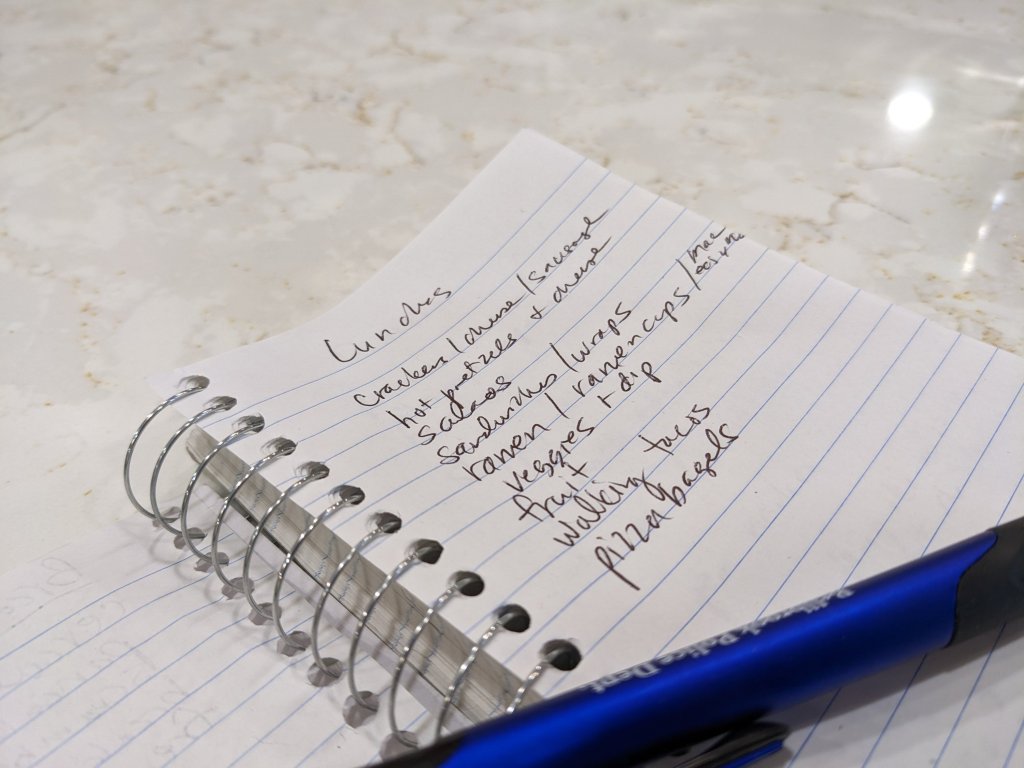 Lunches
crackers/cheese/sausage
hot pretzels + cheese
salads
sandwiches/wraps
ramen / ramen cups / mac
veggies + dip
fruit
walking tacos
pizza bagels
Police Dept